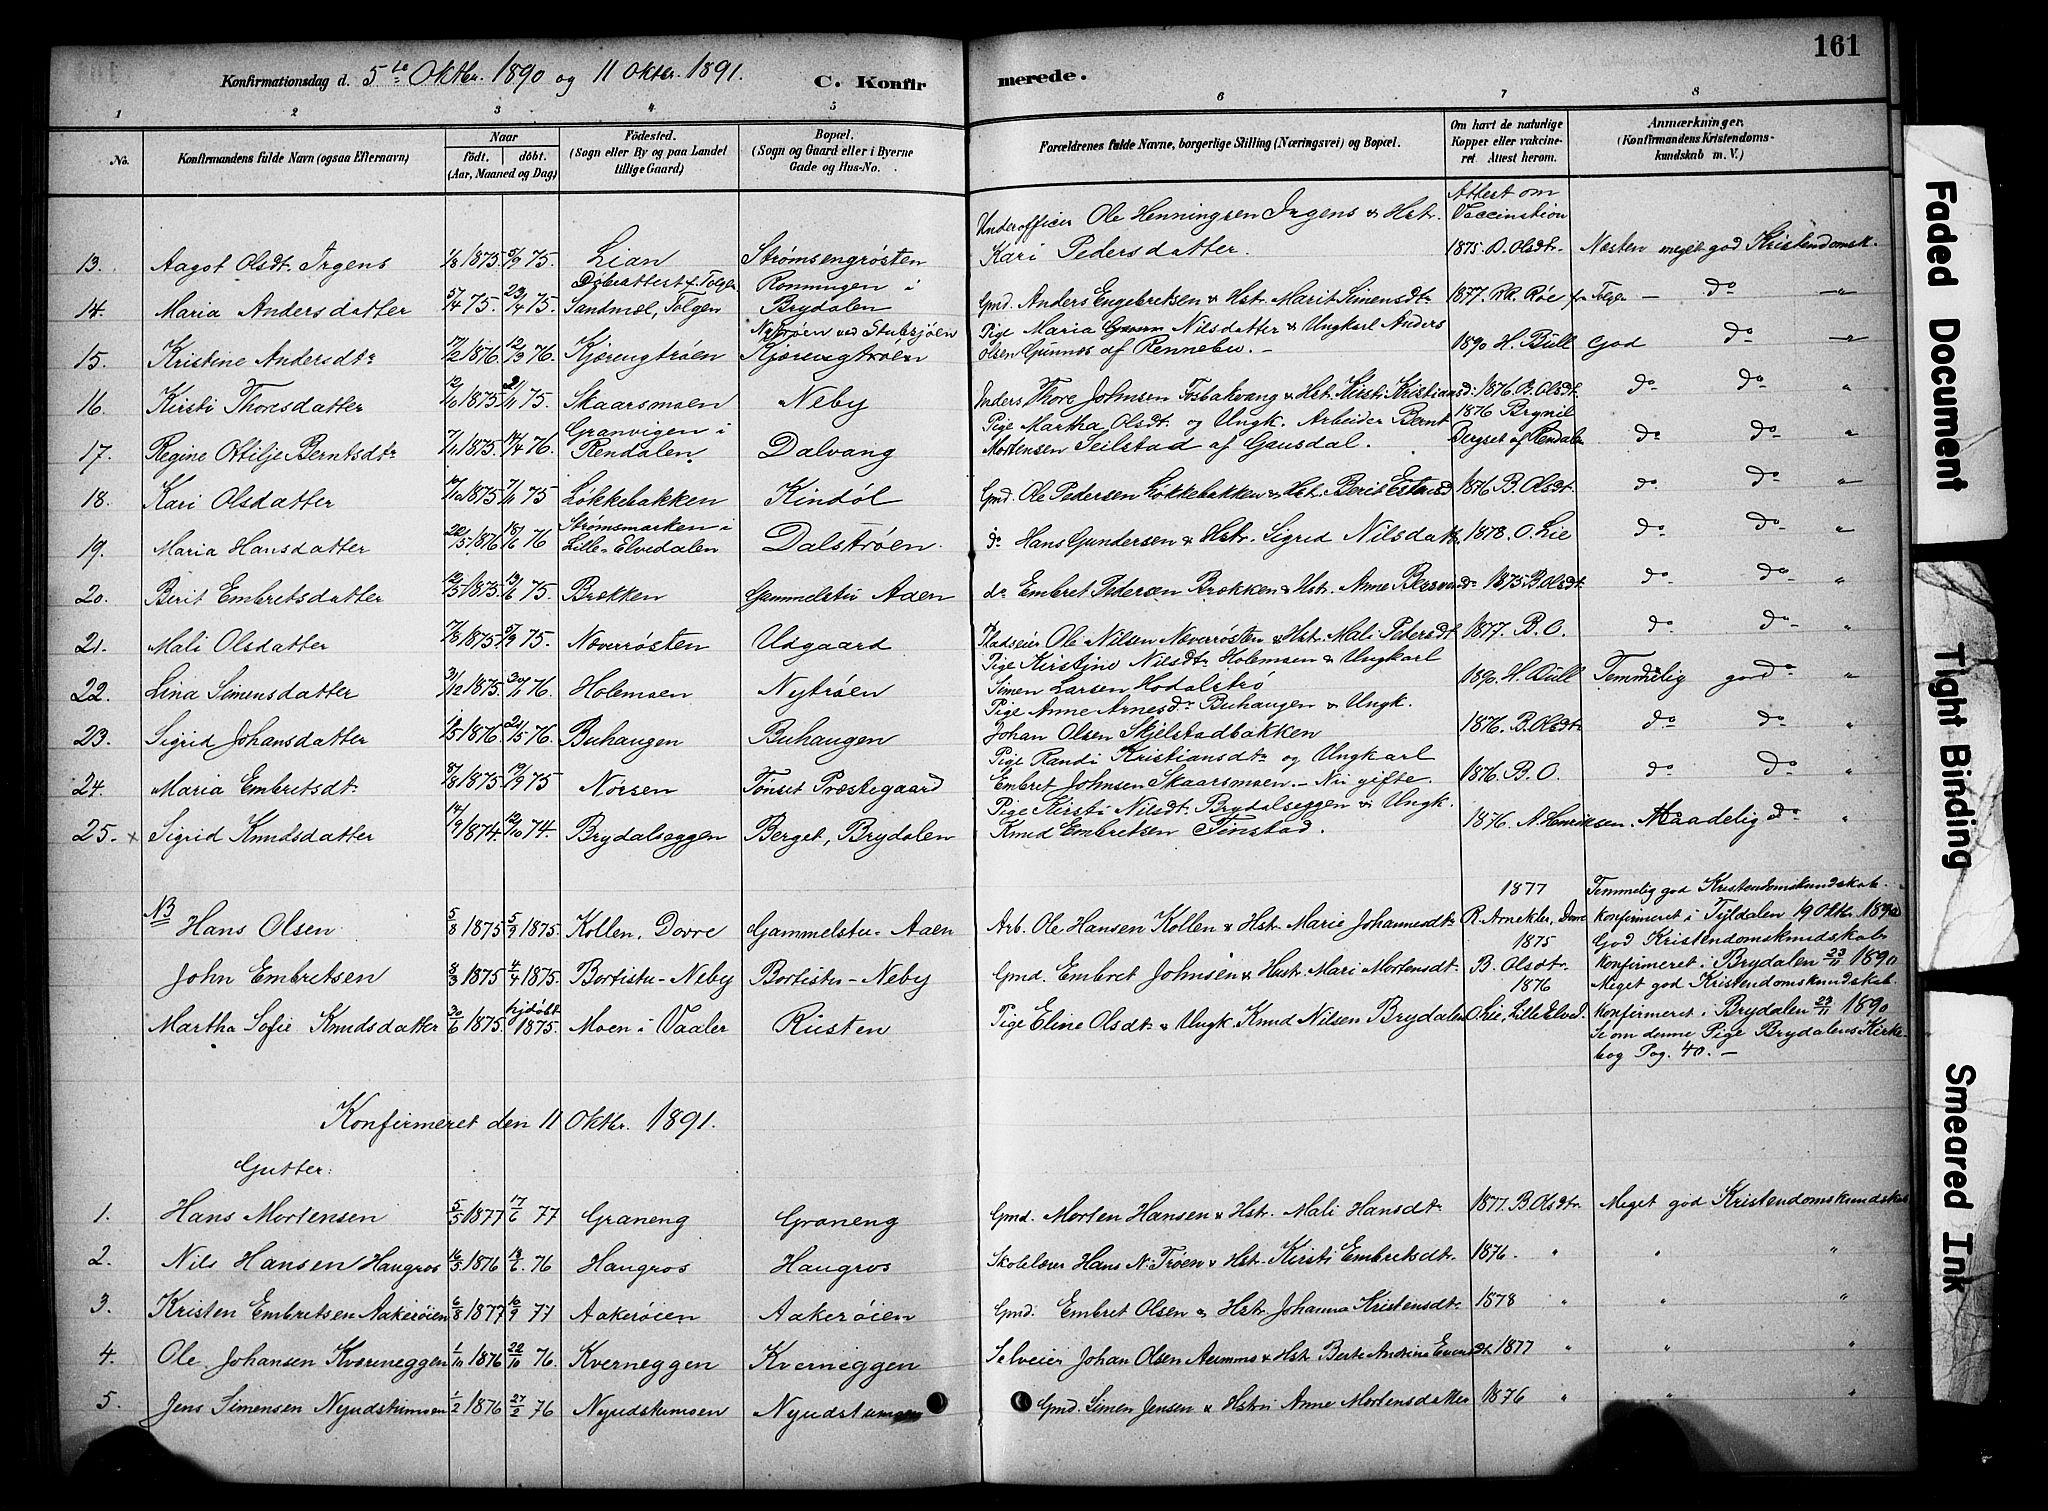 161
Konfirmationsdag d. 5te Oktbr. 1890 og 11 Oktbr. 1891. C. Konfirmerede.
1 2 3 4 5 6 7 8
No. Konfirmandens fulde Navn (ogsaa Efternavn) Naar født. døbt. (Aar, Maaned og Dag) Fødested. (Sogn eller By og paa Landet tillige Gaard) Bopæl. (Sogn og Gaard eller i Byerne Gade og Hus-No. Forældrenes fulde Navne, borgerlige Stilling (Næringsvei) og Bopæl. Om havt de naturlige Kopper eller vaccineret Attest herom. Anmærkninger. (Konfirmandens Kristendomskundskab m. V.)
13. Aagot Olsdt. Irgens 1/8 1875 5/9 75. Lian Strømsengrøsten Underofficer Ole Henningsen Irgens & Hstr. Kari Pedersdatter. Attest om Vaccinstion 1875 B. Olsdt. Næsten meget god Kristendomsk.
14. Maria Andersdatter 5/4 75. 23/4 75. Døbeattest f. Tolgen Sandmæl, Tolgen Ronningen i Brydalen Gmd. Anders Engebretsen & Hstr. Marit Simensdtr 1877. RR. Røe fra Tolgen — do — "
15. Kristene Andersdtr 17/2 1876 12/3 76. Kjærengtrøen Nytrøen ved Stubsjøen Kjærengtrøen Pige Maria Nilsdatter & Ungkarl Anders Olsen Gunnes af Rennebu. — 1890 H. Bull God do "
16. Kirsti Thoresdatter 12/10 1875 21/11 75. Skaarsmoen Neby Inders Thore Johnsen Fosbakvang & Hstr. Kirsti Kristiansd: 1876 B. Olsdt. do do "
17. Regine Ottilje Berntsdtr 7/11 1875. 17/4 76. Granvigen i Rendalen Dalvang Pige Martha Olsdt. og Ungk. Arbeider Bernt Mortensen Seilstad af Gausdal. 1876 Brynil Bergset af Rendalen do do "
18. Kari Olsdatter 17/10 1875 7/11 75 Løkkebakken Kindøl Gmd. Ole Pedersen Løkkebakken & Hstr. Berit Estensd 1876 B. Olsdt. do do "
19. Maria Hansdatter 22/5 1876 18/6 76 Strømsmarken i Lille-Elvedalen Dalstrøen. do Hans Gundersen & Hstr. Sigrid Nilsdatr. 1878. O. Lie do do "
20. Berit Embretsdatter 12/5 1875. 13/6 75. Brækken Gammelstu Aaen do Embret Pedersen Brækken & Hstr. Anne 1875 B. Olsdt do do "
21. Mali Olsdatter 7/8 1875. 5/9 75. Næverrøsten Udgaard Pladseier Ole Nilsen Næverrøsten & Hstr. Mali Pedersdt 1877. B. O. do do "
22. Lina Simensdatter 31/12 1875. 76. Holemoen Nytrøen Pige Kirstine Nilsdtr. Holemoen & Ungkarl Simen Larsen Hodalstrø 1890 H. Bull Temmelig god "
23. Sigrid Johansdatter 1876. 21/5 76. Buhaugen Buhaugen Pige Anne Arnesdr Buhaugen & Ungk. Johan Olsen Skjelstadbakken 1876. B. Olsdtr do do "
24. Maria Embretsdt. 8/8 1875. 19/9 75 Norsen Tønset Præstegaard Pige Randi Kristiansdtr og Ungkarl Embret Johnsen Skaarsmoen. — Nu gifte. 1876. B. O. do do "
25. x Sigrid Knudsdatter 14/9 1874. 12/10 74. Brydalseggen Berget, Brydalen Pige Kirsti Nilsdt. Brydalseggen & Ungk. Knud Embretsen Finstad. 1876 N. Henriksen. Maadelig do "
NB Hans Olsen 5/8 1875 5/9 1875. Kollen, Dovre Gammelstu-Aaen Arb. Ole Hansen Kollen & Hstr. Marie Johannesdtr 1877 R. Arnekler, Dovre Temmelig god Kristendomskundskab. Konfirmeret i Tyldalen 19 Oktbr. 1890
John Embretsen 8/3 1875 4/4 1875. Bortistu-Neby Bortistu-Neby Gmd. Embret Johnsen & Hustr. Mari Mortensdt. 1875 B. Olsdtr. God Kristendomskundskab Konfirmeret i Brydalen 23/11 1890
Martha Sofie Knudsdatter 30/6 1875. hjdøbt 1875. Moen i Vaaler Rusten Pige Eline Olsdt. & Ungk. Knud Nilsen Brydalen 1876 O. Lie, Lille Elvd. Meget god Kristendomskundskab Konfirmeret i Brydalen 23/11 1890 Se om denne Pige Brydalens Kirkebog Pag. 40. —
Konfirmeret den 11 Oktbr. 1891.
Gutter:
1. Hans Mortensen 5/5 1877 17/6 77 Graneng Graneng Gmd. Morten Hansen & Hstr. Mali Hansdtr 1877. B. Olsdtr. Meget god Kristendomskundskab
2. Nils Hansen Haugros 16/5 1876 76 Haugros Haugros Skolelærer Hans N. Trøen & Hstr. Kirsti Embretsdt. 1876. " " "
3. Kristen Embretsen Aakerøien 6/8 1877 16/9 77 Aakerøien Aakerøien Gmd. Embret Olsen & Hstr. Johanna Kristensdtr 1878 " " "
4. Ole Johansen Kværneggen 1/10 1876 22/10 76. Kverneggen Kverneggen Selveier Johan Olsen Aumms & Hstr. Berte Andrine 1877 " " "
5. Jens Simensen Nyudstumoen 1/2 1876 27/2 76 Nyudstumoen Nyudstumoen Gmd. Simen Jensen & Hstru Anne Mortensdatter 1876 " " "
Faded Document
Tight Binding
Smeared Ink